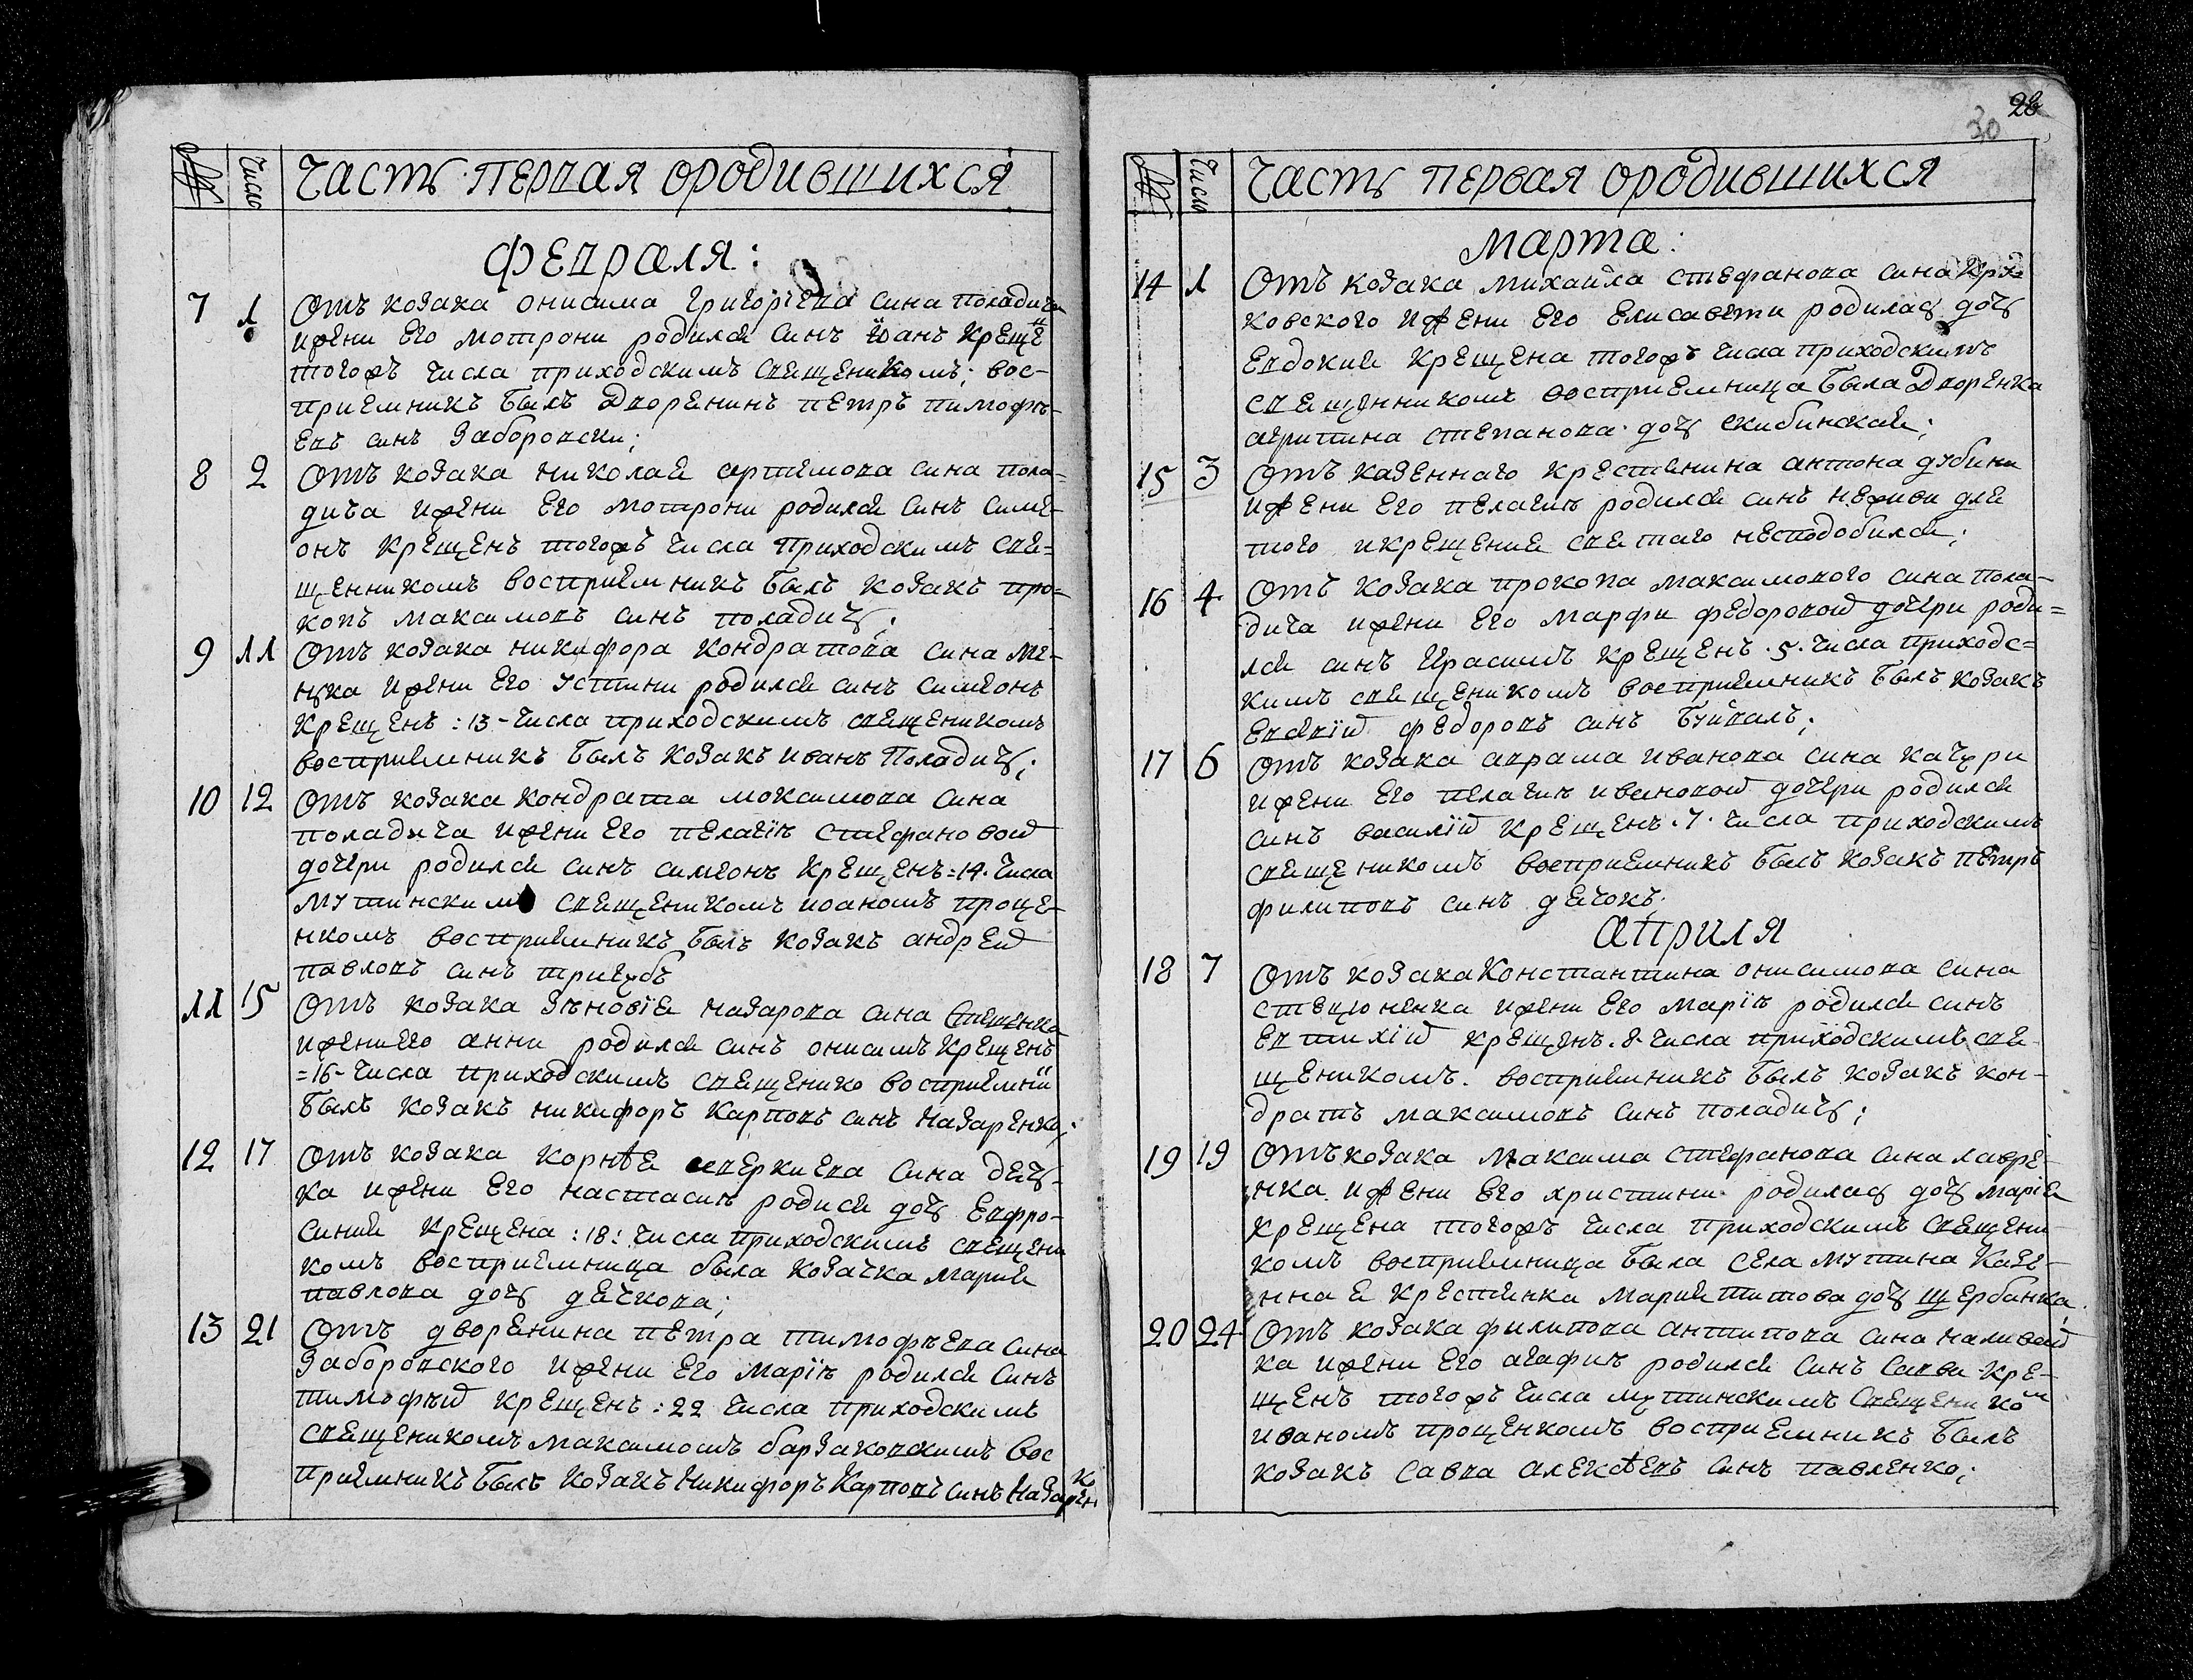 № Число Часть первая ородившихся
Февраля:
7 1 Отъ козака онисима Григоріева сина поладича
ижени Его мотрони родился синъ Іоанъ Крещен
тогожъ числа приходскимъ священикомъ; вос-
приемникъ Былъ Дворенинъ петръ тимофѣ-
евъ синъ Заборовски;
8 2 Отъ козака николая артемова сина пола-
дича ижени Его мотрони родился синъ симе-
онъ крещенъ тогожъ числа приходскимъ свя-
щенникомъ восприемникъ Былъ козакъ про-
копъ максимовъ синъ поладичь;
9 11 Отъ козака никифора кондратова сина ме-
нжка ижени Его устини родился синъ симеонъ
Крещенъ: 13-числа приходскимъ священикомъ
восприемникъ Былъ козакъ иванъ Поладичь;
10 12 Отъ козака кондрата моксимова сина
поладича ижени Его пелагіи стефановой
дочери родился синъ симеонъ крещенъ=14. числа
мутинскимъ священикомъ иоаномъ проце-
нкомъ восприемникъ Былъ козакъ андрей
павловъ синъ тригубъ
11 15 Отъ козака Зѣновія назарова сина
ижени Его анни родился синъ онисимъ крещенъ
=16-числа приходскимъ священико восприемни
Былъ козакъ никифоръ Карповъ синъ Назаренко;
12 17 Отъ козака корнѣя аверкиева сина деч-
ка ижени Его настасии родися дочь Евфро-
синия крещена: 18: числа приходскимъ священи
комъ восприемница была козачка мария
павлова дочь дечкова;
13 21 Отъ дворенина петра тимофѣева сина
Заборовского ижени Его маріи родился синъ
тимофѣй крещенъ: 22 числа приходскимъ
священикомъ максимомъ барзаковскимъ вос
приемникъ Былъ козакъ Никифоръ Карповъ синъ Назарен
ко
28
30
№ Число Часть первая ородившихся
марта:
14 1 Отъ козака михайла стефанова сина
ковского ижени Его Елисавети родилась дочь
Евдокия крещена тогожъ числа приходскимъ
священникомъ восприемница была Дворенка
агрипина степанова дочь скибинская;
15 3 Отъ казеннаго крестянина антона дубини
ижени Его пелагии родился синъ неживи для
того икрещение святаго несподобился;
16 4 Отъ козака прокопа максимового сина пола-
дича ижени Его марфи федоровой дочери роди-
лся синъ Герасимъ крещенъ. 5. числа приходс-
кимъ священикомъ восприемникъ Былъ козакъ
федоровъ синъ Буйвалъ;
17 6 Отъ козака аврама иванова сина качури
ижени Его пелагии ивановой дочери родился
синъ василій крещенъ. 7. числа приходскимъ
священикомъ восприемникъ Былъ козакъ петръ
филиповъ синъ дечокъ.
априля
18 7 Отъ козака Константина онисимова сина
стецюненка ижени Его маріи родился синъ
Евтихій крещенъ. 8. числа приходскимъ свя-
щеникомъ. восприемникъ Былъ козакъ кон-
дратъ максимовъ синъ поладичь;
19 19 Отъ козака максима стефанова сина лавре-
нка. ижени Его христини родилась дочь марія
крещена тогожъ числа приходскимъ священи-
комъ восприемница Была села мутина казе-
нная крестянка мария титова дочь щербанка;
20 24 Отъ козака филипова антипова сина наливай
ка ижени Его агафии родился синъ савви кре-
щенъ тогожъ числа мутинскимъ священиком
иоаномъ проценкомъ восприемникъ Былъ
козакъ савва алексѣевъ синъ павленко;